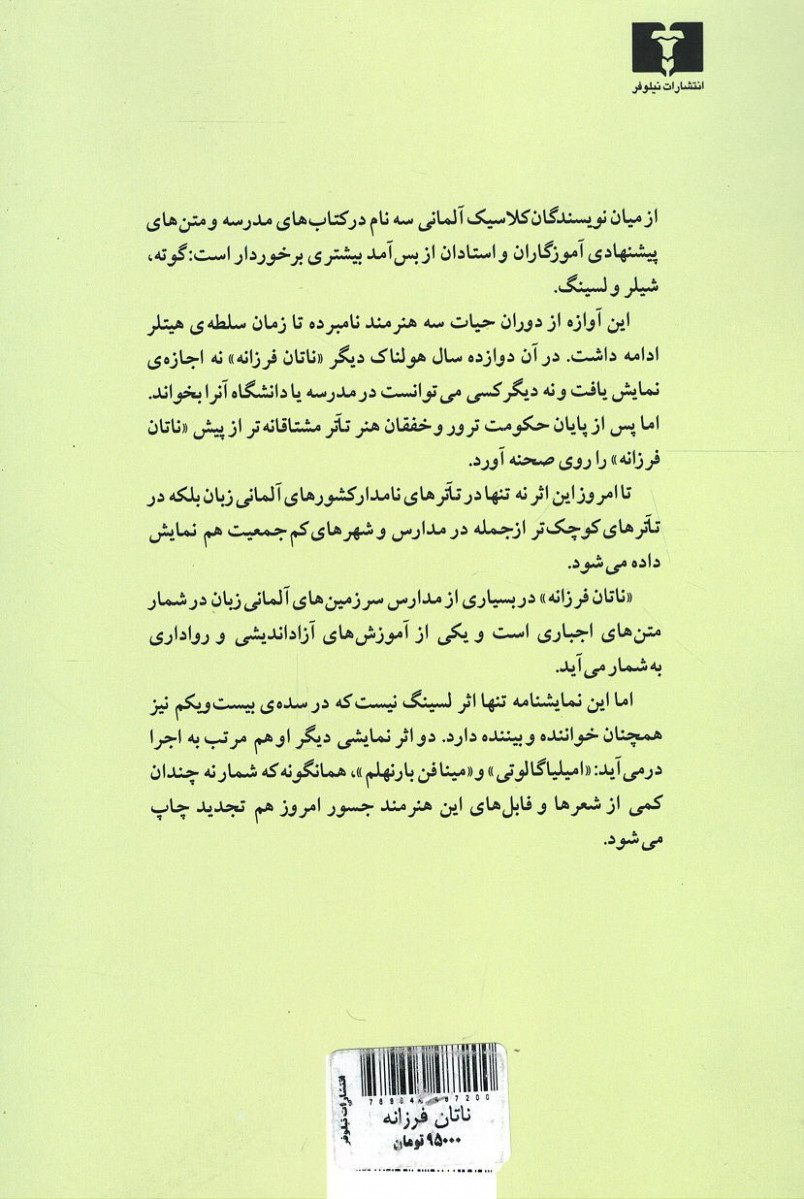 انتشارات نیلوفر
از میان نویسندگان کلاسیک آلمانی سه نام در کتاب‌های مدرسه و متن‌های
پیشنهادی آموزگاران و استادان از بس‌آمد بیشتری برخوردار است: گوته،
شیلر و لسینگ.
این آوازه از دوران حیات سه هنرمند نامبرده تا زمان سلطه‌ی هیتلر
ادامه داشت. در آن دوازده سال هولناک دیگر «ناتان فرزانه» نه اجازه‌ی
نمایش یافت و نه دیگر کسی می‌توانست در مدرسه یا دانشگاه آنرا بخواند.
اما پس از پایان حکومت ترور و خفقان هنر تآتر مشتاقانه‌تر از پیش «ناتان
فرزانه» را روی صحنه آورد.
تا امروز این اثر نه تنها در تآترهای نامدار کشورهای آلمانی زبان بلکه در
تآترهای کوچک‌تر ازجمله در مدارس و شهرهای کم جمعیت هم نمایش
داده می‌شود.
«ناتان فرزانه» در بسیاری از مدارس سرزمین‌های آلمانی زبان در شمار
متن‌های اجباری است و یکی از آموزش‌های آزاداندیشی و رواداری
به‌شمار می‌آید.
اما این نمایشنامه تنها اثر لسینگ نیست که در سده‌ی بیست‌ویکم نیز
همچنان خواننده و بیننده دارد. دو اثر نمایشی دیگر او هم مرتب به اجرا
درمی‌آید: «امیلیا گالوتی» و «مینا فن بارنهلم»، همانگونه که شمار نه چندان
کمی از شعرها و فابل‌های این هنرمند جسور امروز هم تجدید چاپ
می‌شود.
انتشارات نیلوفر
ناتان فرزانه
۹۵۰۰۰ تومان